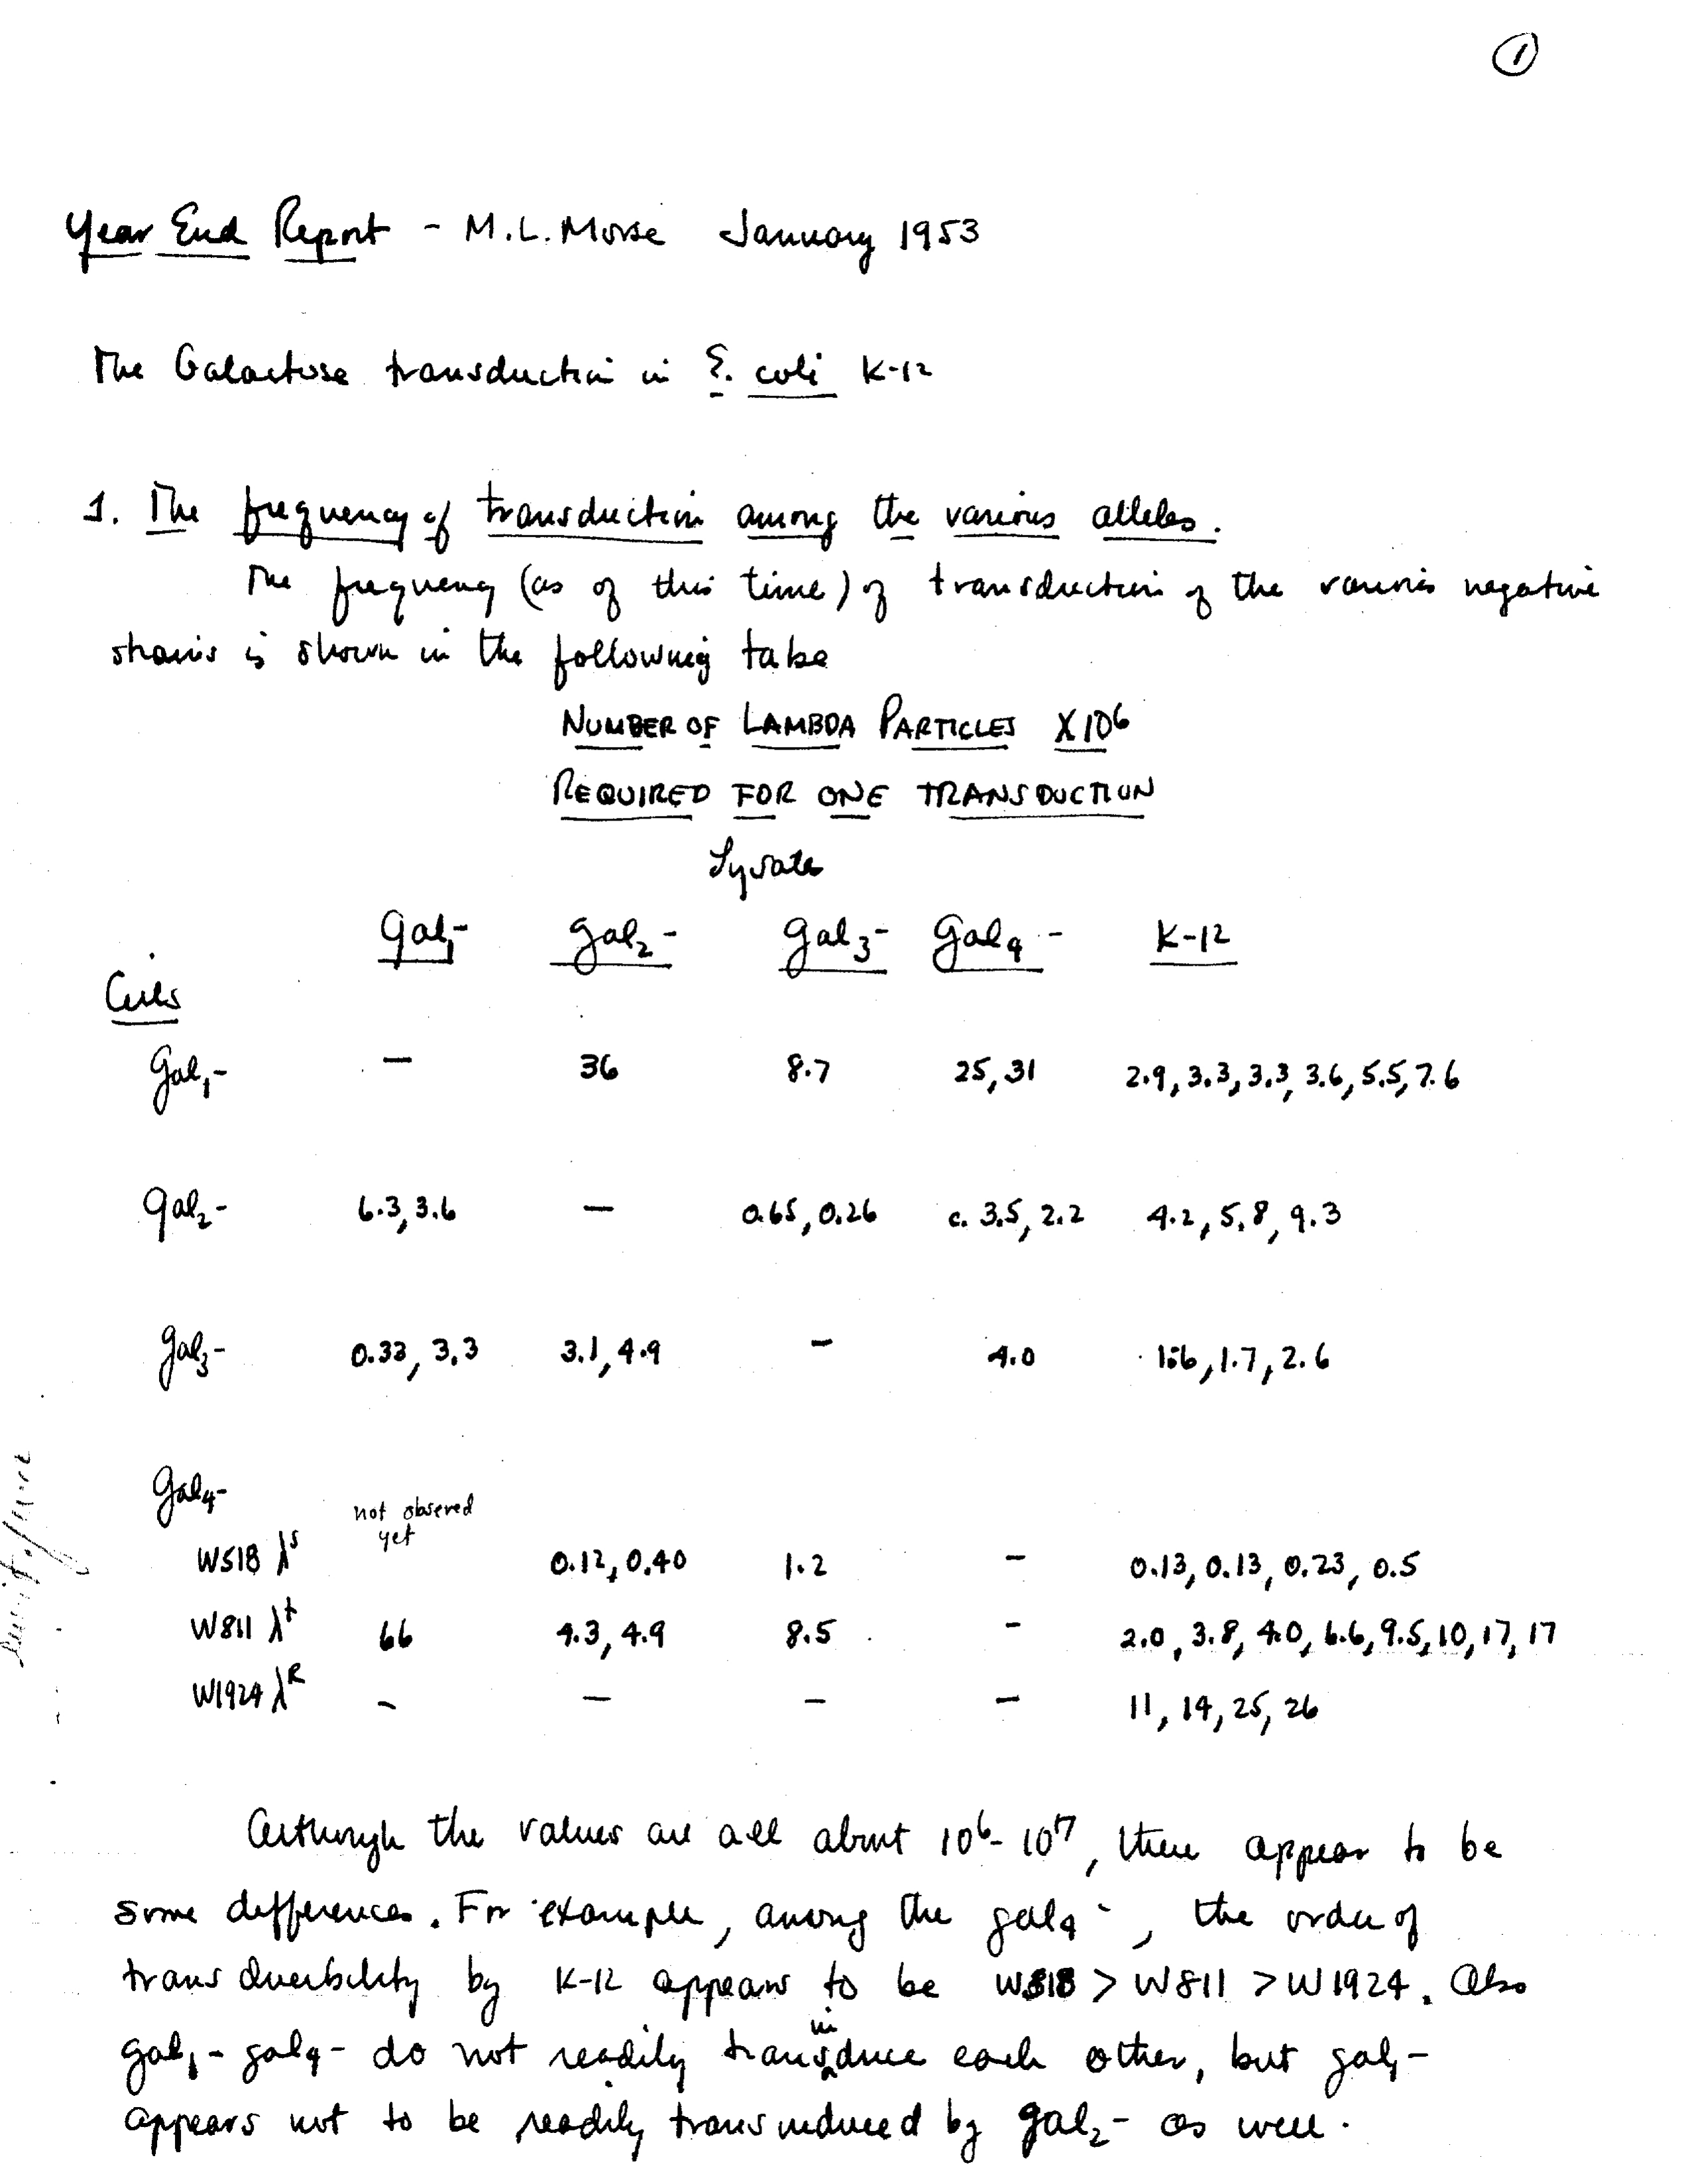 1
Year End Report - M.L. Morse January 1953
The Galactose transduction in E. coli K-12
1. The frequency of transduction among the various alleles.
The frequency (as of this time) of transduction of the various negative
strains is shown in the following table
NUMBER OF LAMBDA PARTICLES X10⁶
REQUIRED FOR ONE TRANSDUCTION
Lysate
Gal₁- Gal₂- Gal₃- Gal₄- K-12
Cells
Gal₁- — 36 8.7 25, 31 2.9, 3.3, 3.3, 3.6, 5.5, 7.6
Gal₂- 6.3, 3.6 — 0.65, 0.26 c. 3.5, 2.2 4.2, 5.8, 9.3
Gal₃- 0.33, 3.3 3.1, 4.9 - 4.0 1.6, 1.7, 2.6
Gal₄-
not obsered
yet
W518 λˢ 0.12, 0.40 1.2 - 0.13, 0.13, 0.23, 0.5
W811 λ⁺ 66 4.3, 4.9 8.5 - 2.0, 3.8, 4.0, 6.6, 9.5, 10, 17, 17
W1924 λᴿ - — - - 11, 14, 25, 26
Although the values are all about 10⁶-10⁷, there appear to be
some differences. For example, among the gal₄-, the order of
transducibility by K-12 appears to be W518 > W811 > W1924. Also
gal₁- gal₄- do not readily transinduce each other, but gal₁-
appears not to be readily transinduced by gal₂- as well.